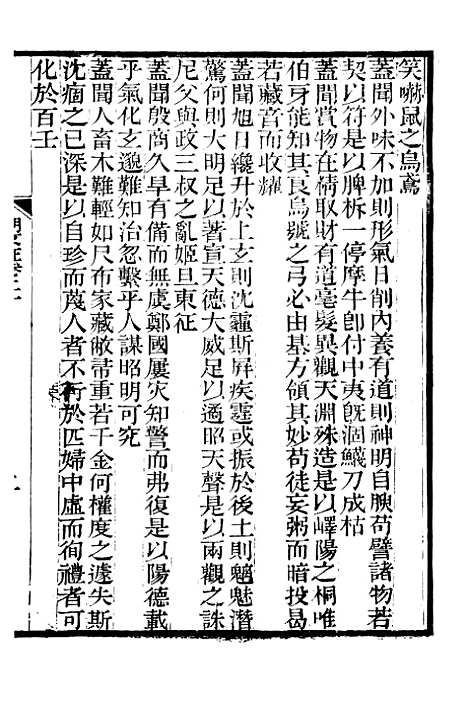 笑嚇鼠之烏鳶
蓋聞外味不加則形氣日削內養有道則神明自腴苟譬諸物若
契以符是以脾析一停摩牛卽付中夷旣涸鱵刀成枯
蓋聞賞物在精取財有道毫髮異觀天淵殊造是以嶧陽之桐唯
伯牙能知其良烏號之弓必由基方領其妙苟徒妄粥而暗投曷
若藏音而收耀
蓋聞旭日纔升於上玄則沈霾斯屏疾霆或振於後土則魑魅潛
驚何則大明足以著宣天德大威足以遹昭天聲是以兩觀之誅
尼父與政三叔之亂姬旦東征
蓋聞殷商久旱有備而無虞鄭國屢災知警而弗復是以陽德載
乎氣化玄邈難知治忽繫乎人謀昭明可究
蓋聞人畜木難輕如尺布家藏敝帚重若千金何權度之遽失斯
沈痼之已深是以自珍而蔑人者不行於匹婦中虛而徇禮者可
化於百壬